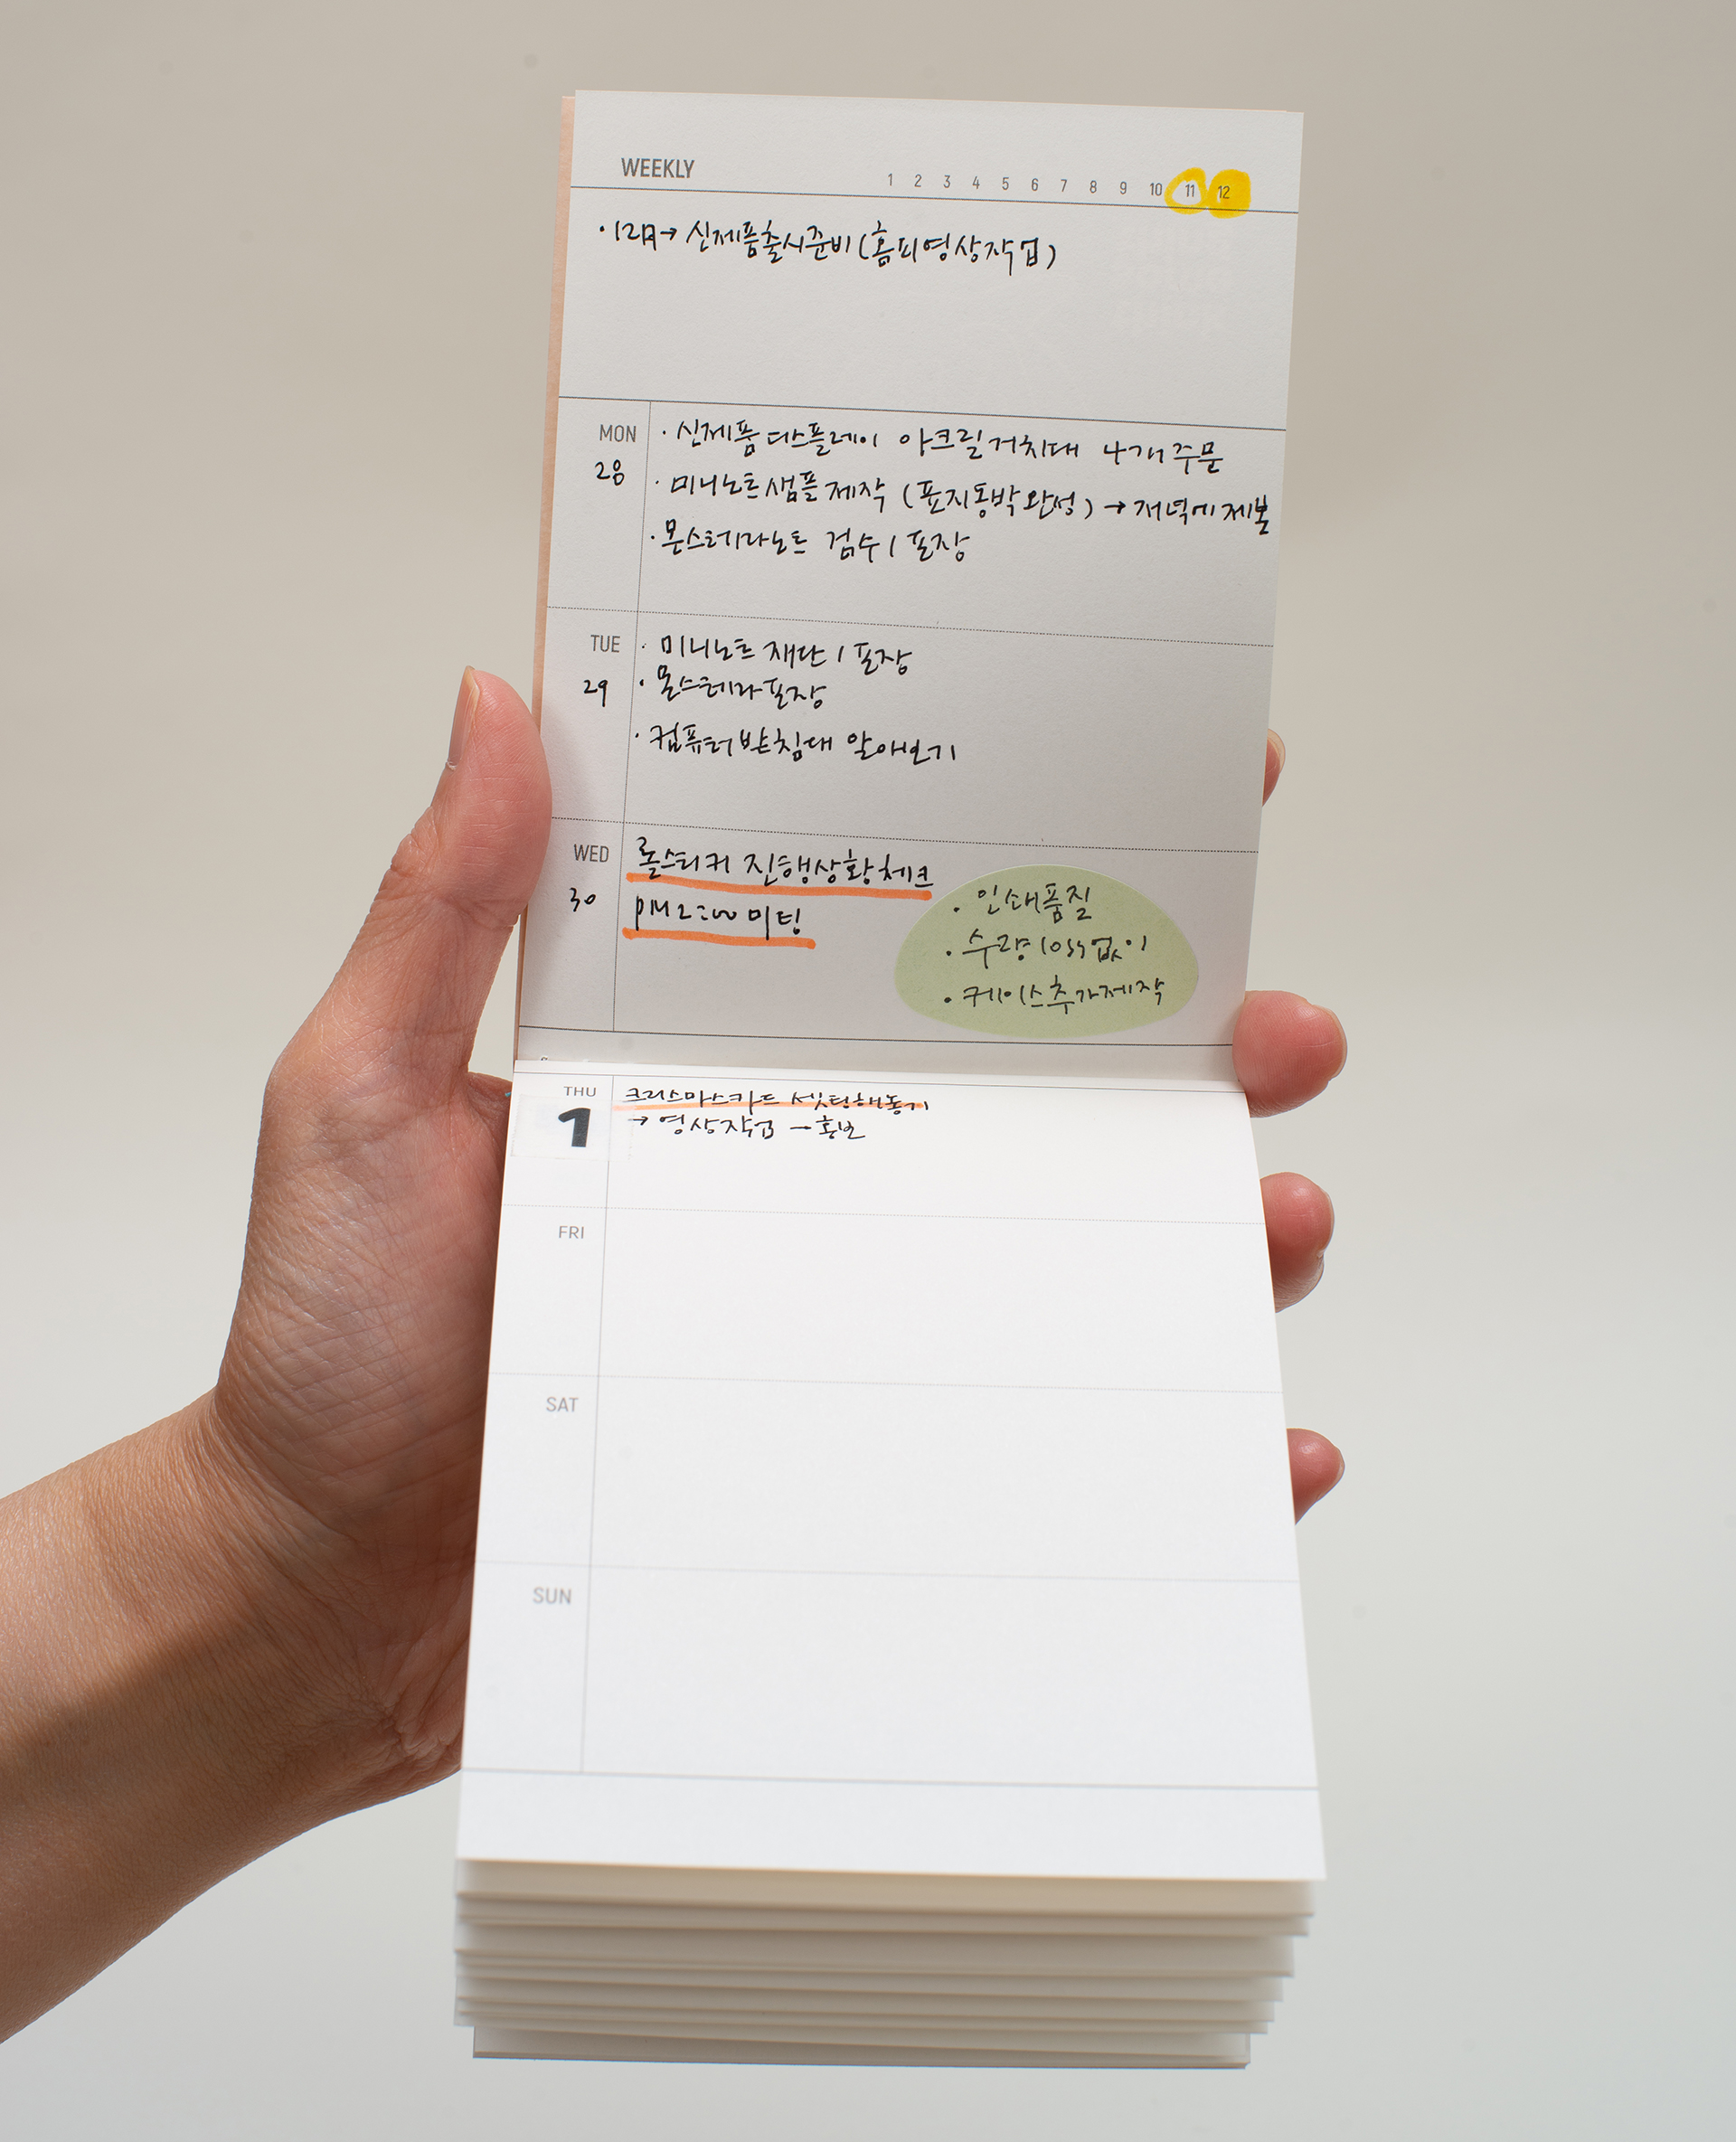 WEEKLY
1 2 3 4 5 6 7 8 9 10 11 12
· 12月→ 신제품출시준비(홈피영상작업)
MON
28
· 신제품 디스플레이 아크릴거치대 4개 주문
· 미니노트샘플제작 (표지동박완성) → 저녁에 제본
· 몬스테라노트 검수 / 포장
TUE
29
· 미니노트 재단 / 포장
· 몬스테라포장
· 컴퓨터받침대 알아보기
WED
30
롤스티커 진행상황체크
PM 2:00 미팅
· 인쇄품질
· 수량loss없이
· 케이스추가제작
THU
1
크리스마스카드 셋팅해놓기
→ 영상작업 → 홍보
FRI
SAT
SUN